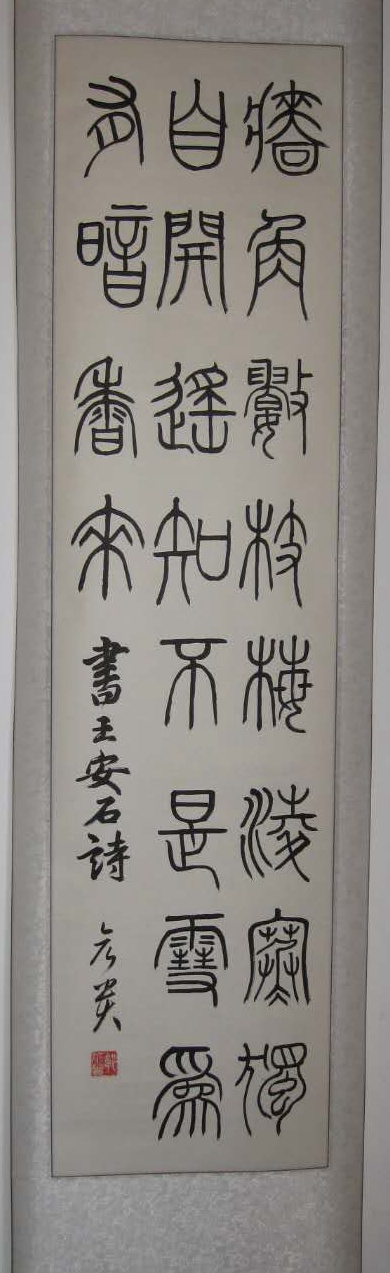 牆角數枝梅淩寒獨
自開遙知不是雪爲
有暗香來
書王安石詩